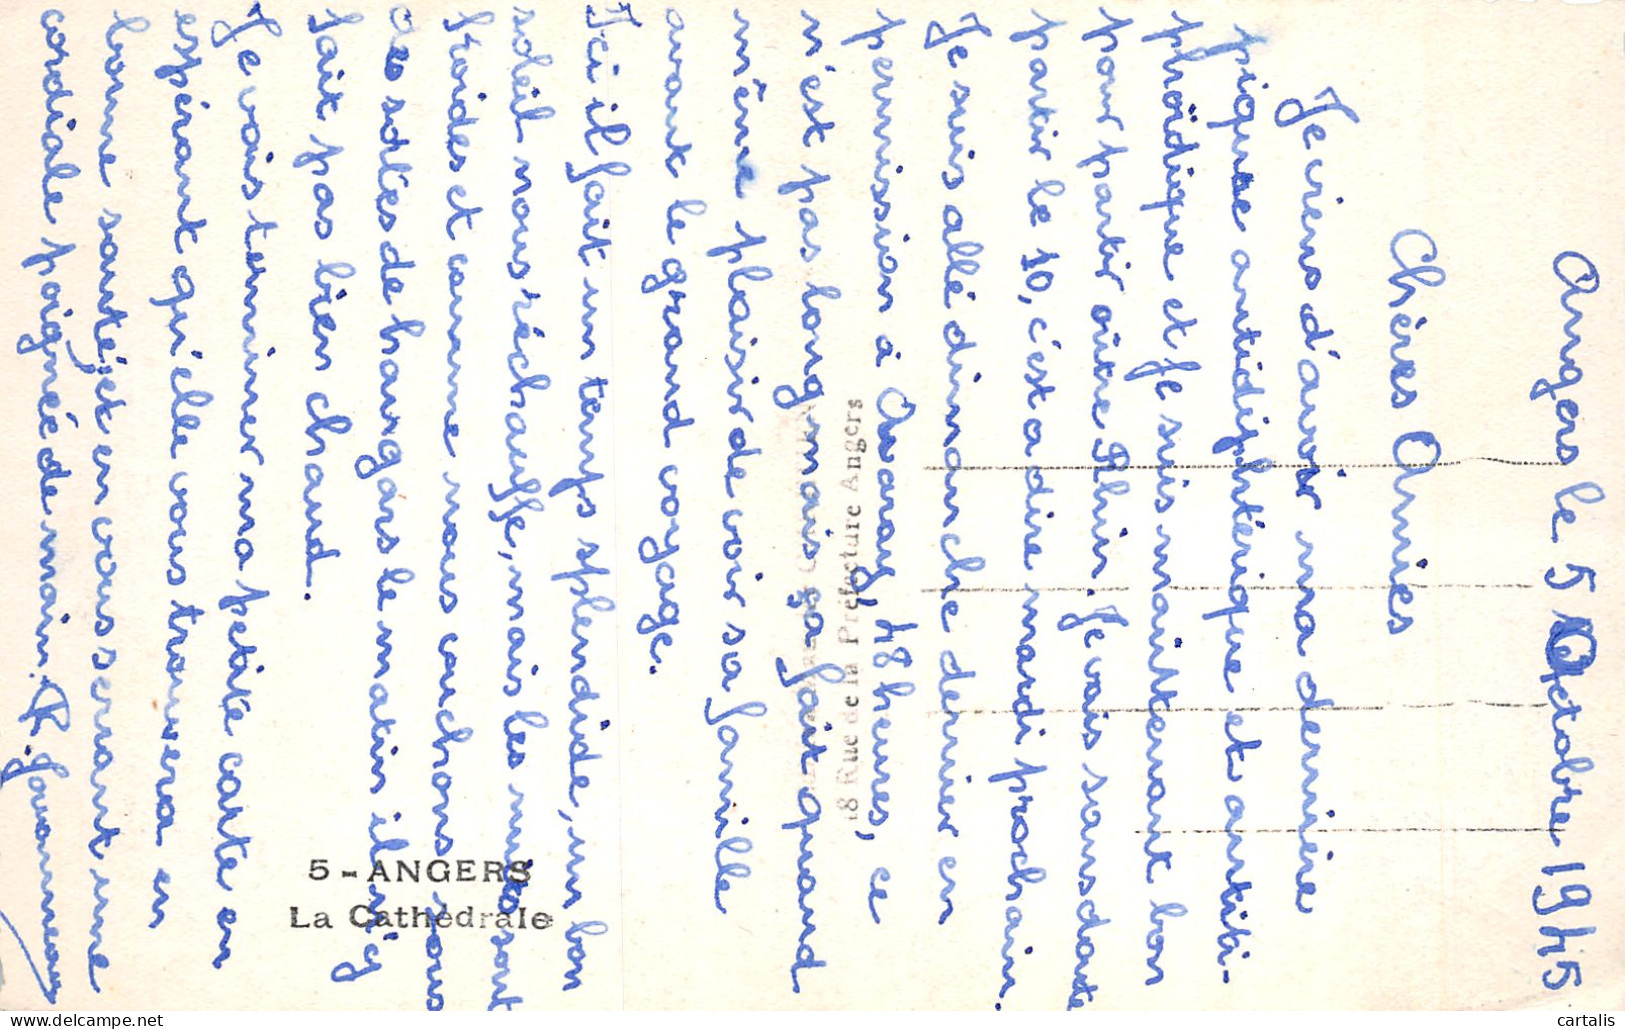 Angers le 5 Octobre 1945
Chères Amies
Je viens d'avoir ma dernière
piqure antidiphtérique et antiti-
phoïdique et Je suis maintenant bon
pour partir outre Rhin. Je vais sans doute
partir le 10, c'est a dire mardi prochain.
Je suis allé dimanche dernier en
permission à Avaray, 48 heures, ce
n'est pas long mais ça fait quand
même plaisir de voir sa famille
avant le grand voyage.
Ici il fait un temps splendide, un bon
soleil nous réchauffe, mais les nuits sont
froides et comme nous couchons sous
des sortes de hangars le matin il n'y
fait pas bien chaud.
Je vais terminer ma petite carte en
espérant qu'elle vous trouvera en
bonne santé, et en vous serrant une
cordiale poignée de main. R.
18 Rue de la Préfecture Angers
5 - ANGERS
La Cathédrale
cartalis